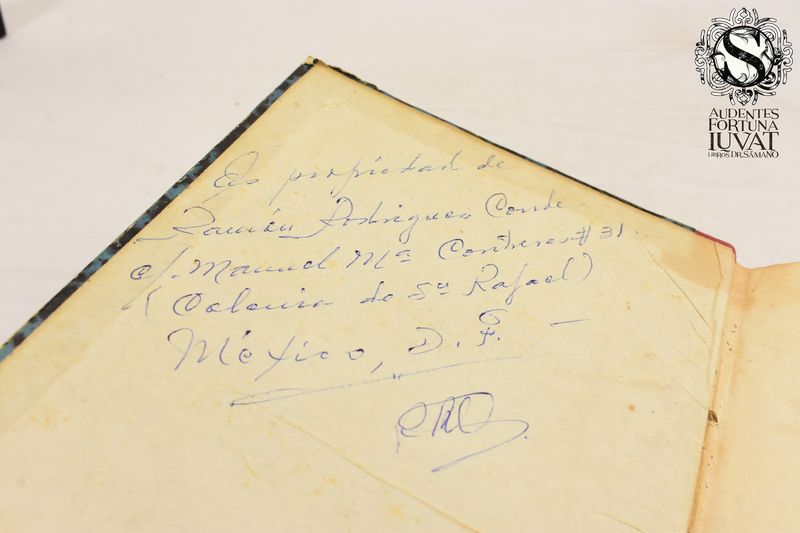 Es propiedad de
Ramón Rodriguez Conde
c/. Manuel Mª Contreras #31
(Colonia de Sn Rafael)
México, D. F. —
S
AUDENTES
FORTUNA
IUVAT
LIBROS DR. SÁMANO